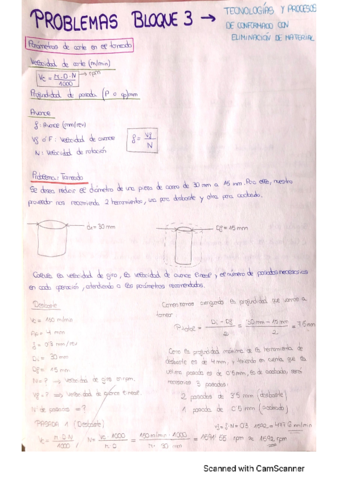 PROBLEMAS BLOQUE 3 →
TECNOLOGÍAS Y PROCESOS
DE CONFORMADO CON
ELIMINACIÓN DE MATERIAL
Parámetros de corte en el torneado
Velocidad de corte (m/min)
Vc = π·D·N / 1000 → rpm
Profundidad de pasada (P = ap) mm
Avance
f: Avance (mm/rev)
Vf o F: Velocidad de avance
N: Velocidad de rotación
f = Vf / N
Problema: Torneado
Se desea reducir el diámetro de una pieza de acero de 30 mm a 15 mm. Para ello, nuestro
proveedor nos recomienda 2 herramientas, una para desbaste y otra para acabado.
Di = 30 mm
Df = 15 mm
Calcula la velocidad de giro, la velocidad de avance lineal y el número de pasadas necesarias
en cada operación, atendiendo a los parámetros recomendados.
Desbaste
Vc = 150 m/min
ap = 4 mm
f = 0.3 mm/rev
Di = 30 mm
Df = 15 mm
N = ? velocidad de giro en rpm.
Vf = ? velocidad de avance
Nº de pasadas = ?
PASADA 1 (Desbaste)
Vc = π·D·N / 1000
N = Vc·1000 / π·D = 150 m/min · 1000 / π·30 mm
rpm
calculando la profundidad que vamos a
tornear.
P total = Di - Df / 2 = 30 mm - 15 mm / 2 = 7.5 mm
Como la profundidad máxima de la herramienta de
desbaste es de 4 mm, y teniendo en cuenta que la
última pasada es de 0.5 mm, la de acabado,
necesitaremos 3 pasadas:
2 pasadas de 3.5 mm (desbaste)
1 pasada de 0.5 mm (acabado)
Scanned with CamScanner